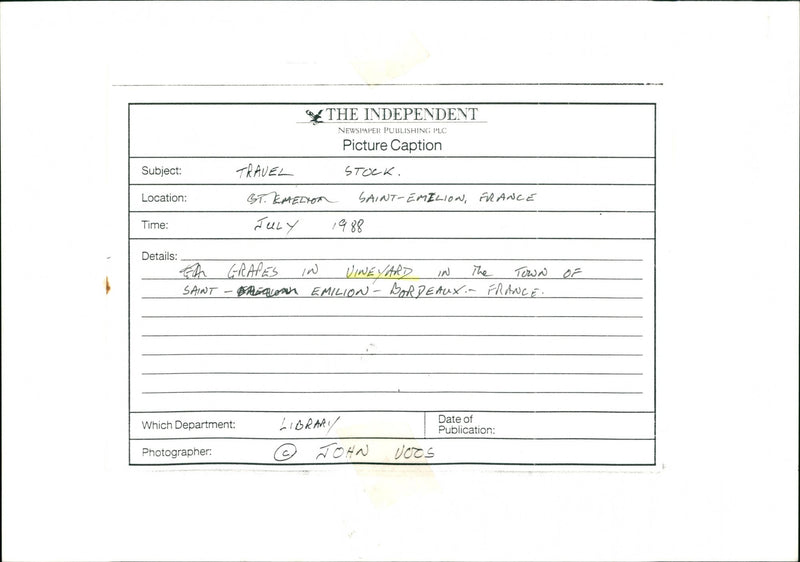 THE INDEPENDENT
NEWSPAPER PUBLISHING PLC
Picture Caption
Subject: TRAVEL STOCK.
Location: ST. EMELION SAINT-EMILION, FRANCE
Time: JULY 1988
Details:
GRAPES IN VINEYARD IN The TOWN OF
SAINT - EMILION - BORDEAUX. - FRANCE.
Which Department: LIBRARY
Date of
Publication:
Photographer: © JOHN VOOS